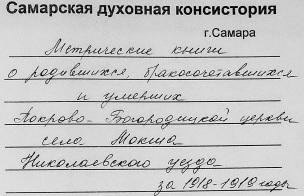 Самарская духовная консистория
г.Самара
Метрические книги
о родившихся, бракосочетавшихся
и умерших
Покрово-Богородицкой церкви
села Мокша
Николаевского уезда
за 1918-1919 годы